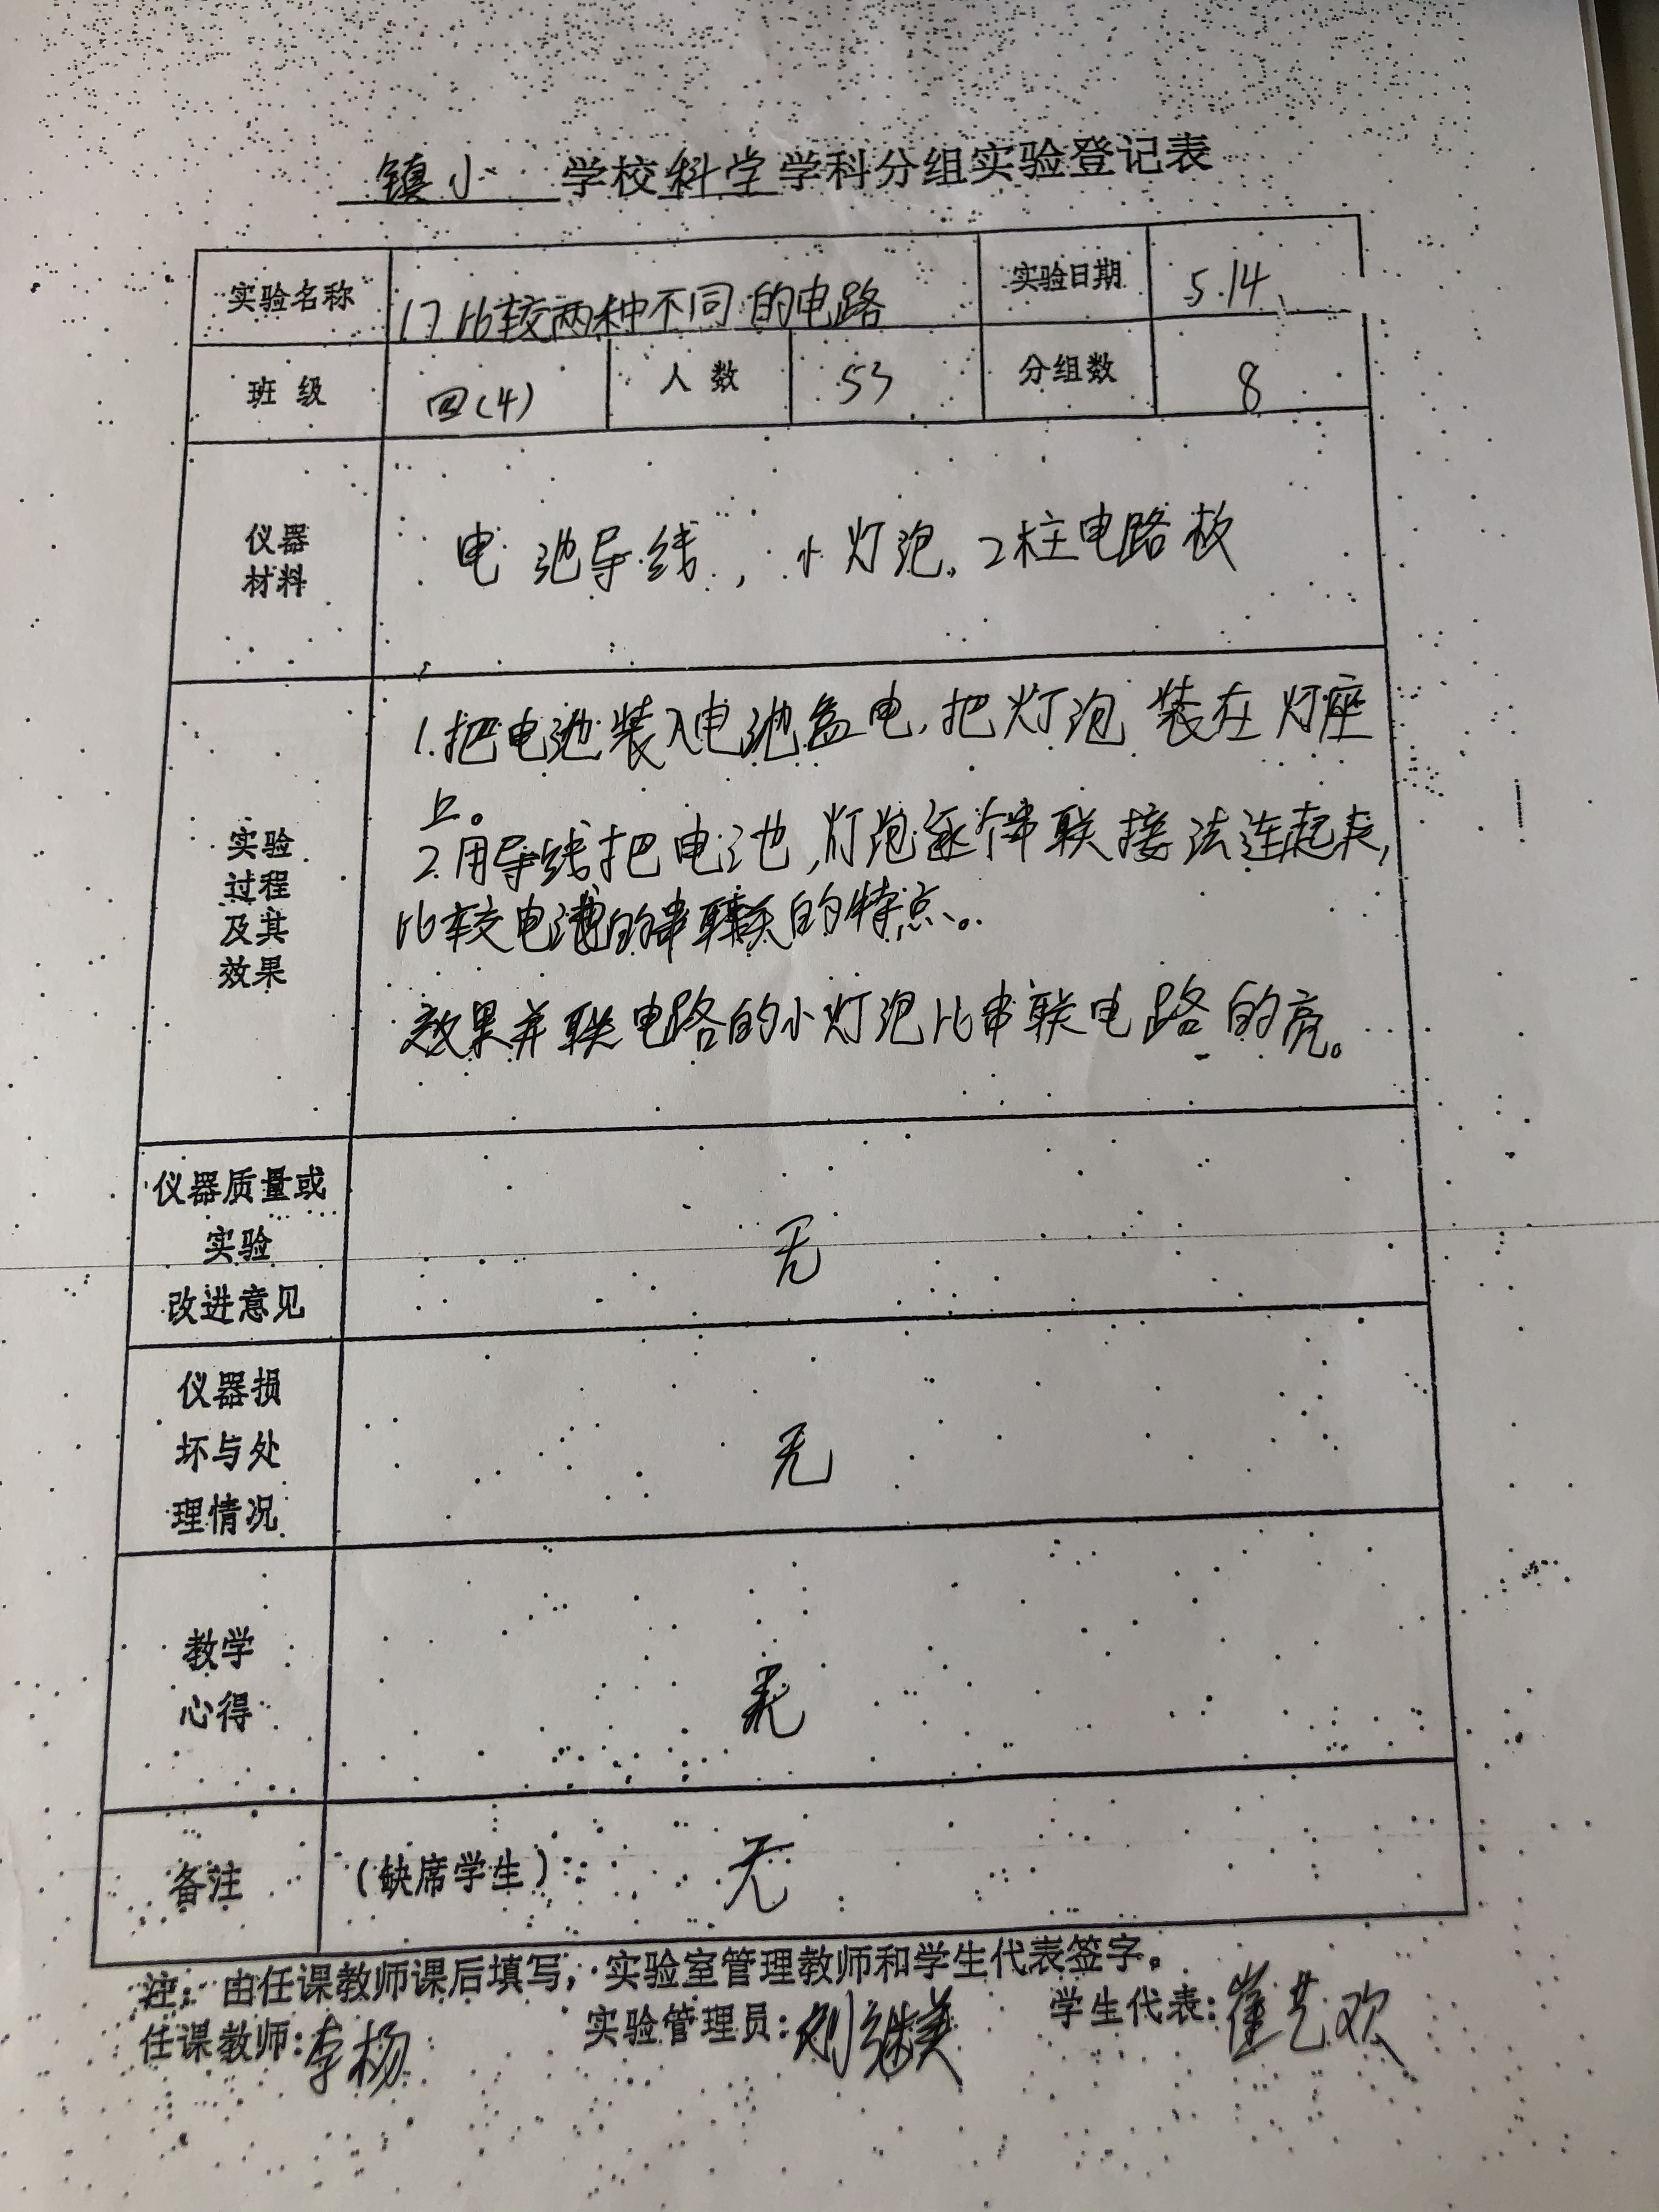 镇小 学校科学学科分组实验登记表
实验名称 17比较两种不同的电路 实验日期 5.14
班级 四(4) 人数 53 分组数 8
仪器
材料
电池导线,小灯泡,2柱电路板
实验
过程
及其
效果
1.把电池装入电池盒电,把灯泡装在灯座
上。
2.用导线把电池,灯泡逐个串联接法连起来,
比较电池的串联的特点。
效果并联电路的小灯泡比串联电路的亮。
仪器质量或
实验
改进意见
无
仪器损
坏与处
理情况
无
教学
心得
无
备注 (缺席学生): 无
注:由任课教师课后填写,实验室管理教师和学生代表签字。
任课教师:李杨 实验管理员:刘继美 学生代表:崔艺欢